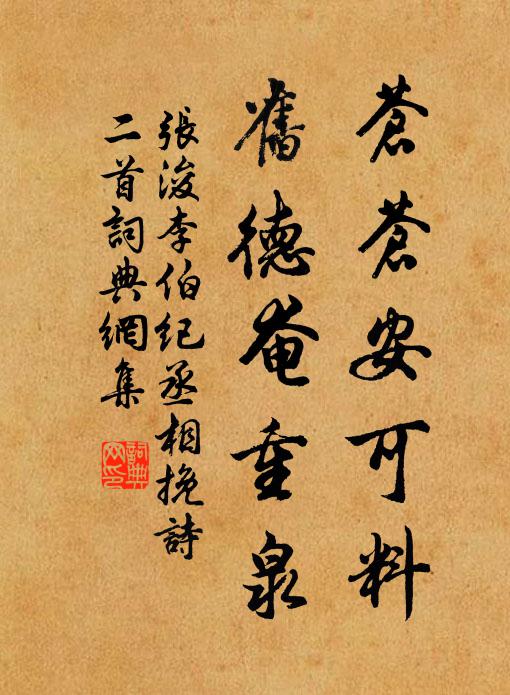 蒼蒼安可料
舊德奄重泉
張浚李伯紀丞相挽詩
二首詞典網集
詞典網印